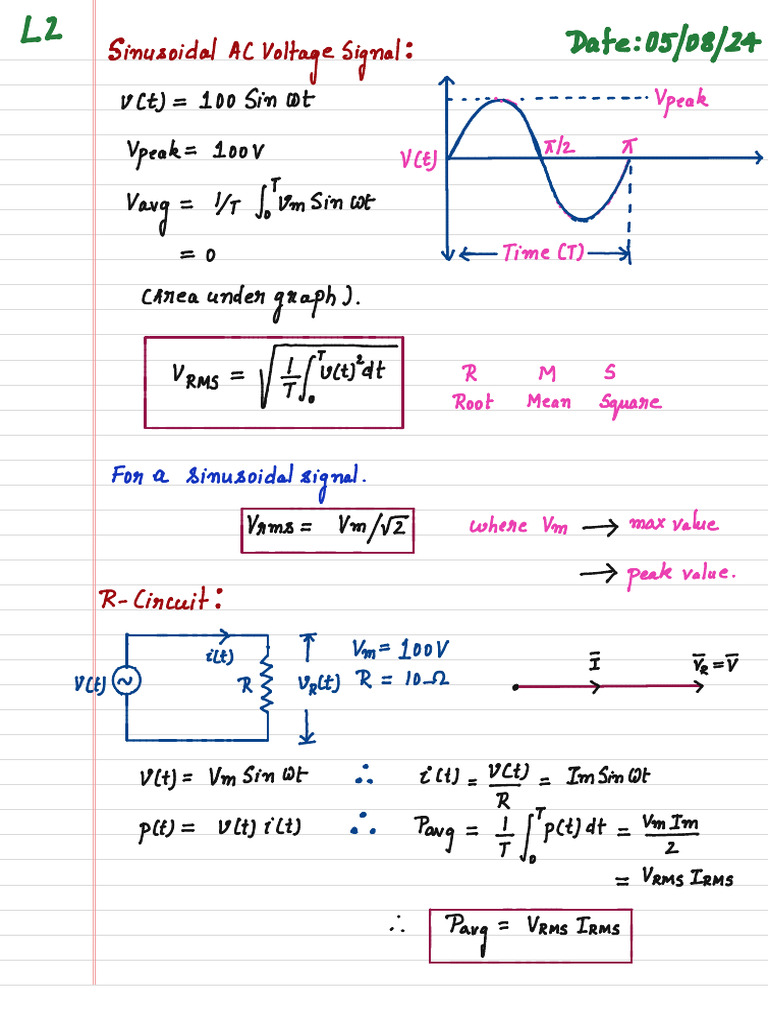 L2
Date: 05/08/24
Sinusoidal AC Voltage Signal:
v(t) = 100 Sin ωt
Vpeak
Vpeak = 100V
V(t)
π/2
π
Vavg = 1/T ∫₀ᵀ Vm Sin ωt
= 0
Time (T)
(Area under graph).
VRMS = √(1/T ∫₀ᵀ v(t)² dt)
R M S
Root Mean Square
For a sinusoidal signal.
Vrms = Vm/√2
where Vm → max value
→ peak value.
R-Circuit:
i(t)
V(t) ~
R
VR(t)
Vm = 100V
R = 10-Ω
Ī
V̄R = V̄
V(t) = Vm Sin ωt ∴ i(t) = V(t)/R = Im Sin ωt
p(t) = V(t) i(t) ∴ Pavg = 1/T ∫₀ᵀ p(t) dt = Vm Im/2
= VRMS IRMS
∴ Pavg = VRMS IRMS